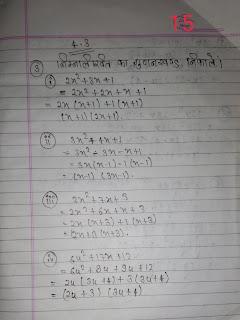 15
4.3
③ निम्नलिखित का गुणनखण्ड निकालें।
(i) 2x²+3x+1
= 2x²+2x+x+1
= 2x(x+1)+1(x+1)
(x+1)(2x+1).
(ii) 3x²-4x+1
= 3x²-3x-x+1
= 3x(x-1)-1(x-1)
= (x-1) (3x-1).
(iii) 2x²+7x+3
= 2x²+6x+x+3
= 2x(x+3)+1(x+3)
= (2x+1)(x+3).
(iv) 6y²+17y+12
= 6y²+8y+9y+12
= 2y(3y+4)+3(3y+4)
= (2y+3) (3y+4)